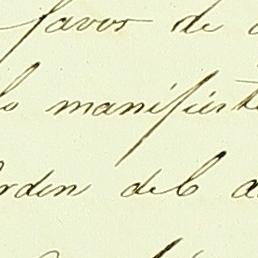 favor de
lo manifieste
orden del a